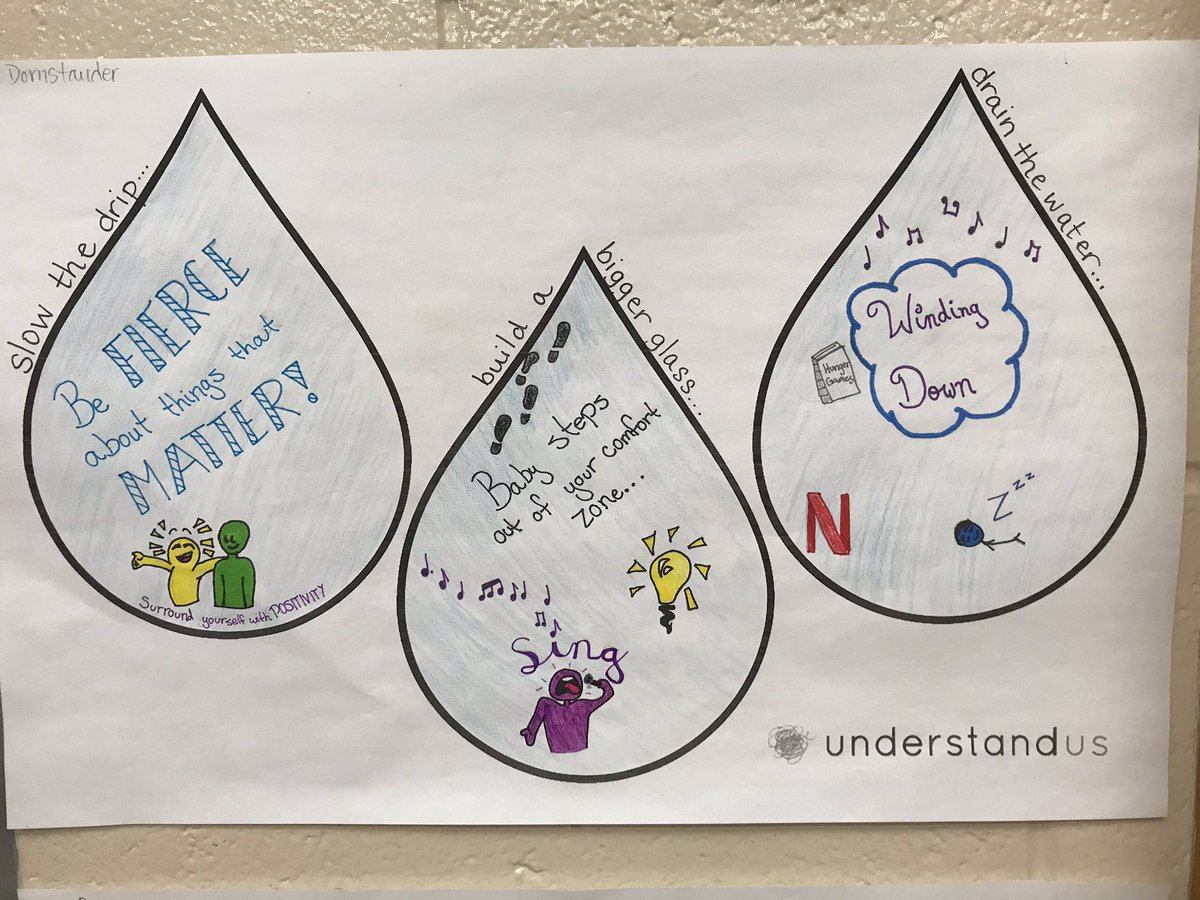 Dornstauder
slow the drip...
Be FIERCE
about things that
MATTER!
Surround yourself with POSITIVITY
build a
bigger glass...
Baby steps
out of your comfort
zone...
Sing
drain the water...
Winding
Down
Hunger
Games
N
Zzz
understandus